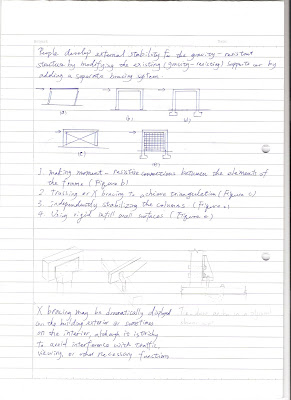 People develop external stability for the gravity-resistant
structure by modifying the existing (gravity-resisting) supports or by
adding a separate bracing system.
(a) (b) (d)
(c) (e)
1. making moment-resistive connections between the elements of
the frame (Figure b)
2. Trussing or X bracing to achieve triangulation (Figure c)
3. independently stabilizing the columns (Figure
4. Using rigid infill wall surfaces (Figure e)
X bracing may be dramatically displayed
on the building exterior or sometimes
on the interior, although it is tricky
to avoid interference with traffic,
viewing, or other necessary function